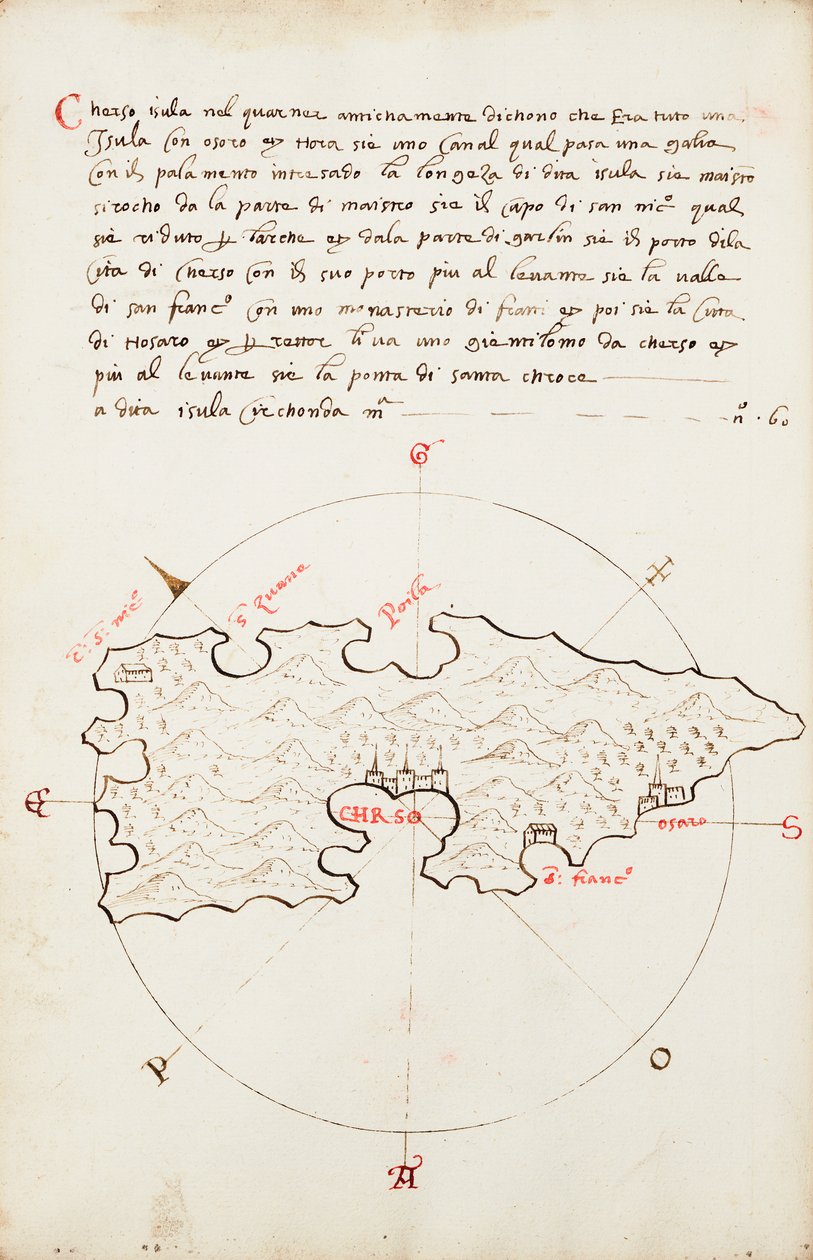 Cherso isula nel quarner antichamente dichono che Era tuto una
Isula Con osoro et Hora sie uno Canal qual pasa una galia
Con il palamento intresado la longeza di dita isula sie maistro
sirocho da la parte di maistro sie il Capo di san nic° qual
sie riduto p barche et dala parte di garbin sie il porto dila
Cita di Cherso Con il suo porto piu al levante sie la valle
di san franc° Con uno monasterio di frati et poi sie la Cita
di Hosaro et p rettor li va uno gientilomo da cherso et
piu al levante sie la ponta di santa chroce
a dita isula Circhonda mª n° · 60
G
c: s: nic°
s
Poisla
E
CHRSO
osaro
S
s: franc°
P
O
A